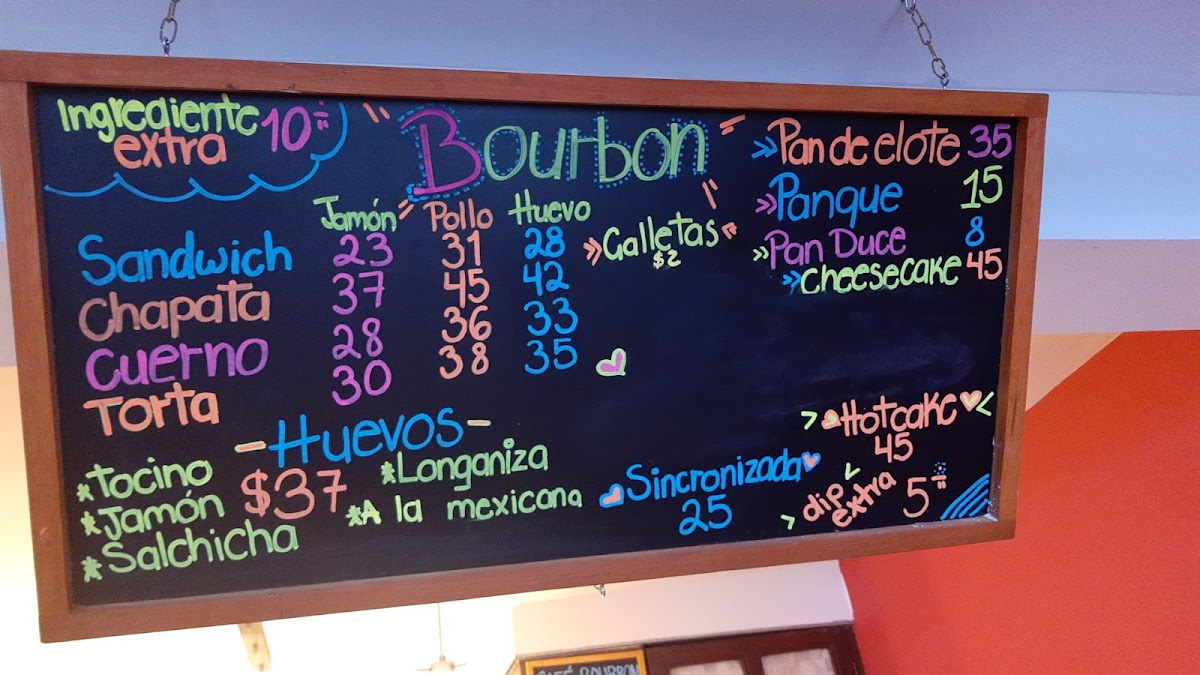 Ingrediente
extra 10.=
Bourbon
Jamón Pollo Huevo
Sandwich 23 31 28
Chapata 37 45 42
Cuerno 28 36 33
Torta 30 38 35
Galletas
$2
Pan de elote 35
Panque 15
Pan Duce 8
cheesecake 45
-Huevos-
*Tocino
*Jamón
*Salchicha
$37
*Longaniza
*A la mexicana
Sincronizada
25
Hotcake
45
dip
extra 5.=
CAFÉ BOURBON